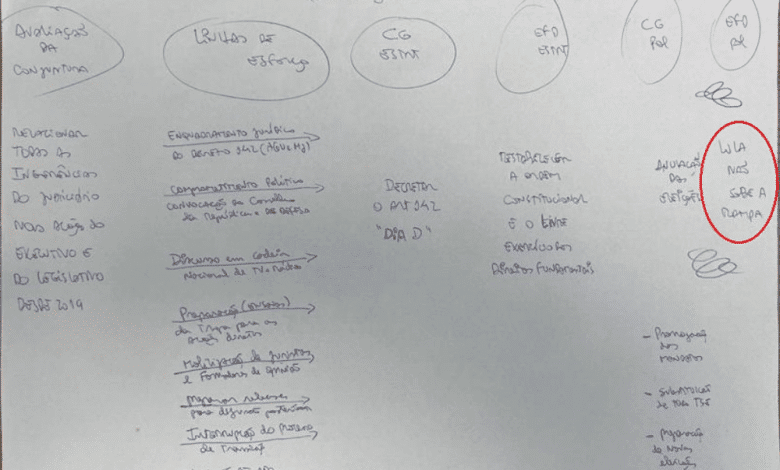 AVALIAÇÃO
DA
CONJUNTURA
LINHAS DE
ESFORÇO
CG
ESTNT
EFD
ESTNT
CG
POL
EFD
POL
RELACIONAR
TODAS AS
INTERFERÊNCIAS
DO JUDICIÁRIO
NAS AÇÃO DO
EXECUTIVO E
DO LEGISLATIVO
DESDE 2019
ENQUADRAMENTO JURÍDICO
DO DECRETO 142 (AGU e MJ)
COMPROMETIMENTO POLÍTICO
CONVOCAÇÃO DO CONSELHO
DA REPÚBLICA E DA DEFESA
DISCURSO EM CADEIA
NACIONAL DE TV e RÁDIO
PREPARAÇÃO (ENSAIOS)
DA TROPA PARA AS
AÇÕES DIRETAS
MOBILIZAÇÃO DE JURISTAS
E FORMADORES DE OPINIÃO
PREPARAR
PARA POSTERIORES
INTERRUPÇÃO DO PROCESSO
DE TRANSIÇÃO
DECRETAR
O ART 142
"DIA D"
RESTABELECER
A ORDEM
CONSTITUCIONAL
E O
DIREITOS FUNDAMENTAIS
ANULAÇÃO
DAS
ELEIÇÕES
LULA
NÃO
SOBE A
RAMPA
- PRORROGAÇÃO
DOS
MANDATOS
- SUBSTITUIÇÃO
DE TODO TSE
- PREPARAÇÃO
DE NOVAS
ELEIÇÕES